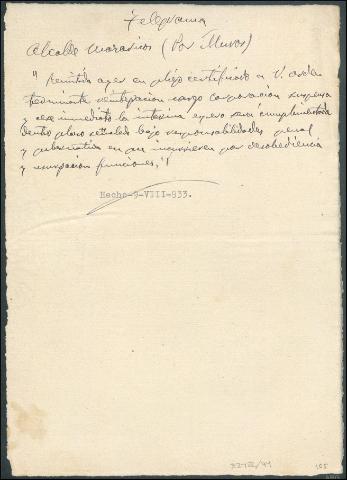 Telegrama
Alcalde Mazaricos (Por Muros)
"Remitida ayer en pliego certificado a V. orden
terminante reintegracion cargo corporación suspensa
y cese inmediato la interina espero será cumplimentada
dentro plazo señalado bajo responsabilidades penal
y gubernativa en que incurrieren por desobediencia
y usurpación funciones,"
Hecho-9-VIII-933.
105